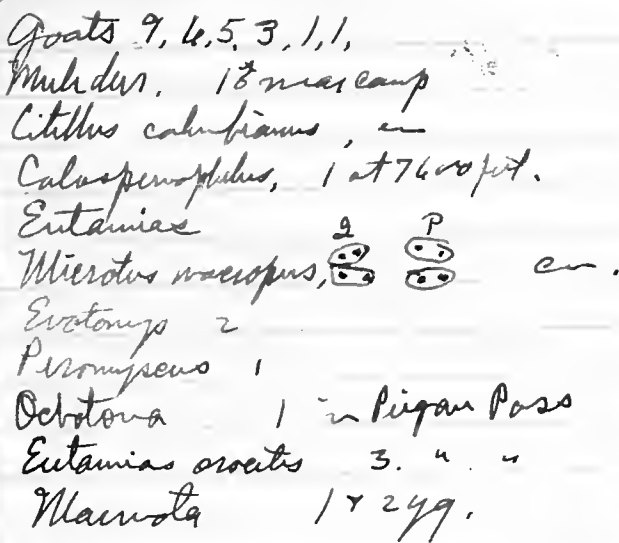 Goats 9, 6, 5, 3, 1, 1,
Mule deer. 1 ♂ near camp
Citellus columbianus, cm
Callospermophilus, 1 at 7600 feet.
Eutamias
Microtus macropus, cm.
Evotomys 2
Peromyscus 1
Ochotona 1 in Piegan Pass
Eutamias orocetes 3. " "
Marmota 1 & 2 yg.